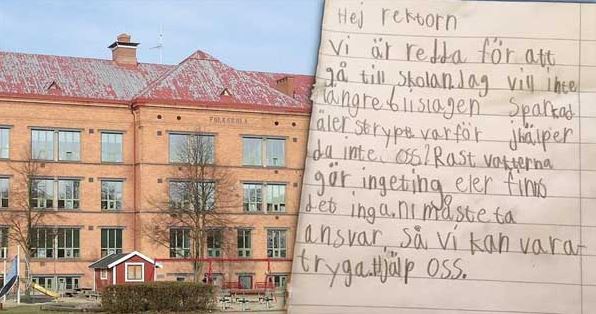 FOLKSKOLA
Hej rektorn
Vi är redda för att
gå till skolan Jag vill inte
längre bli slagen Sparkad
äler strypt varför jhälper
da inte. oss? Rast vakterna
gör ingeting eler finns
det inga. ni måste ta
ansvar. så vi kan vara
tryga. Hjälp oss.